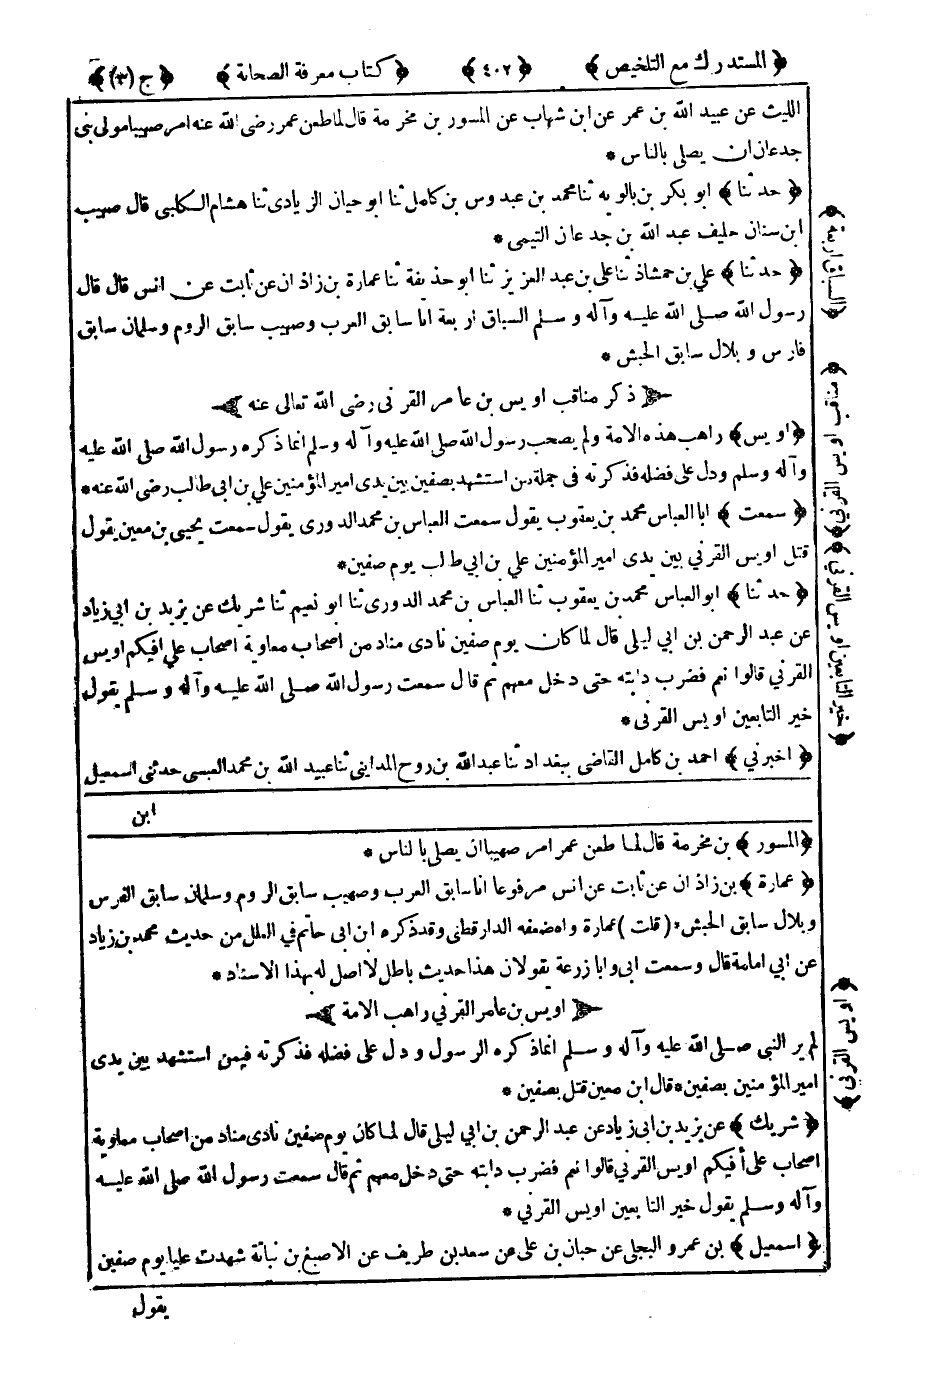 ﴿ المستدرك مع التلخيص ﴾ ﴿ ٤٠٢ ﴾ ﴿ كتاب معرفة الصحابة ﴾ ﴿ ج (٣) ﴾
الليث عن عبيد الله بن عمر عن ابن شهاب عن المسور بن مخرمة قال لما طعن عمر رضى الله عنه امر صهيبا مولى بنى
جدعان ان يصلى بالناس *
﴿ حدثنا ﴾ ابو بكر بن بالويه ثنا محمد بن عبدوس بن كامل ثنا ابو حيان الزيادى ثنا هشام الكلبى قال صهيب
ابن سنان حليف عبد الله بن جدعان التيمى *
﴿ حدثنا ﴾ علي بن حمشاذ ثنا على بن عبد العزيز ثنا ابو حذيفة ثنا عمارة بن زاذان عن ثابت عن انس قال قال
رسول الله صلى الله عليه وآله وسلم السباق اربعة انا سابق العرب وصهيب سابق الروم وسلمان سابق
فارس وبلال سابق الحبش *
ذكر مناقب اويس بن عامر القرنى رضى الله تعالى عنه
﴿ اويس ﴾ راهب هذه الامة ولم يصحب رسول الله صلى الله عليه وآله وسلم انما ذكره رسول الله صلى الله عليه
وآله وسلم ودل على فضله فذكرته فى جملة من استشهد بصفين بين يدى امير المؤمنين علي بن ابى طالب رضى الله عنه *
﴿ سمعت ﴾ ابا العباس محمد بن يعقوب يقول سمعت العباس بن محمد الدورى يقول سمعت يحيى بن معين يقول
قتل اويس القرني بين يدى امير المؤمنين علي بن ابي طالب يوم صفين *
﴿ حدثنا ﴾ ابو العباس محمد بن يعقوب ثنا العباس بن محمد الدورى ثنا ابو نعيم ثنا شريك عن يزيد بن ابي زياد
عن عبد الرحمن بن ابي ليلى قال لما كان يوم صفين نادى مناد من اصحاب معاوية اصحاب علي افيكم اويس
القرني قالوا نعم فضرب دابته حتى دخل معهم ثم قال سمعت رسول الله صلى الله عليه وآله وسلم يقول
خير التابعين اويس القرنى *
﴿ اخبرني ﴾ احمد بن كامل القاضى ببغداد ثنا عبد الله بن روح المدايني ثنا عبيد الله بن محمد العبسى حدثنى اسمعيل
ابن
﴿ المسور ﴾ بن مخرمة قال لما طعن عمر امر صهيبا ان يصلى بالناس *
﴿ عمارة ﴾ بن زاذان عن ثابت عن انس مرفوعا انا سابق العرب وصهيب سابق الروم وسلمان سابق الفرس
وبلال سابق الحبش * (قلت) عمارة واه ضعفه الدارقطنى وقد ذكره ابن ابى حاتم في العلل من حديث محمد بن زياد
عن ابي امامة قال وسمعت ابى وابا زرعة يقولان هذا حديث باطل لا اصل له بهذا الاسناد *
اويس بن عامر القرني راهب الامة
لم ير النبي صلى الله عليه وآله وسلم انما ذكره الرسول ودل على فضله فذكرته فيمن استشهد بين يدى
امير المؤمنين بصفين * قال ابن معين قتل بصفين *
﴿ شريك ﴾ عن يزيد بن ابى زياد عن عبد الرحمن بن ابي ليلى قال لما كان يوم صفين نادى مناد من اصحاب معاوية
اصحاب على أفيكم اويس القرني قالوا نعم فضرب دابته حتى دخل معهم ثم قال سمعت رسول الله صلى الله عليه
وآله وسلم يقول خير التابعين اويس القرني *
﴿ اسمعيل ﴾ بن عمرو البجلى عن حبان بن على عن سعد بن طريف عن الاصبغ بن نباتة شهدت عليا يوم صفين
يقول
﴿ السباق اربعة ﴾
﴿ مناقب اويس القرني ﴾
﴿ خير التابعين اويس القرني ﴾
﴿ اويس القرني ﴾